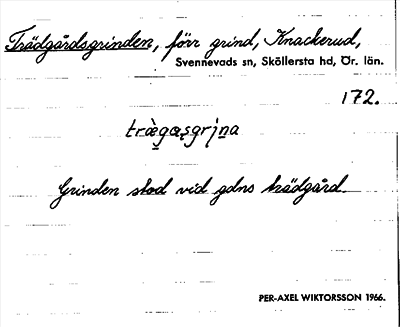 Trädgårdsgrinden, förr grind, Knackerud,
Svennevads sn, Sköllersta hd, Ör. län.
172.
Grinden stod vid gdns trädgård.
PER-AXEL WIKTORSSON 1966.